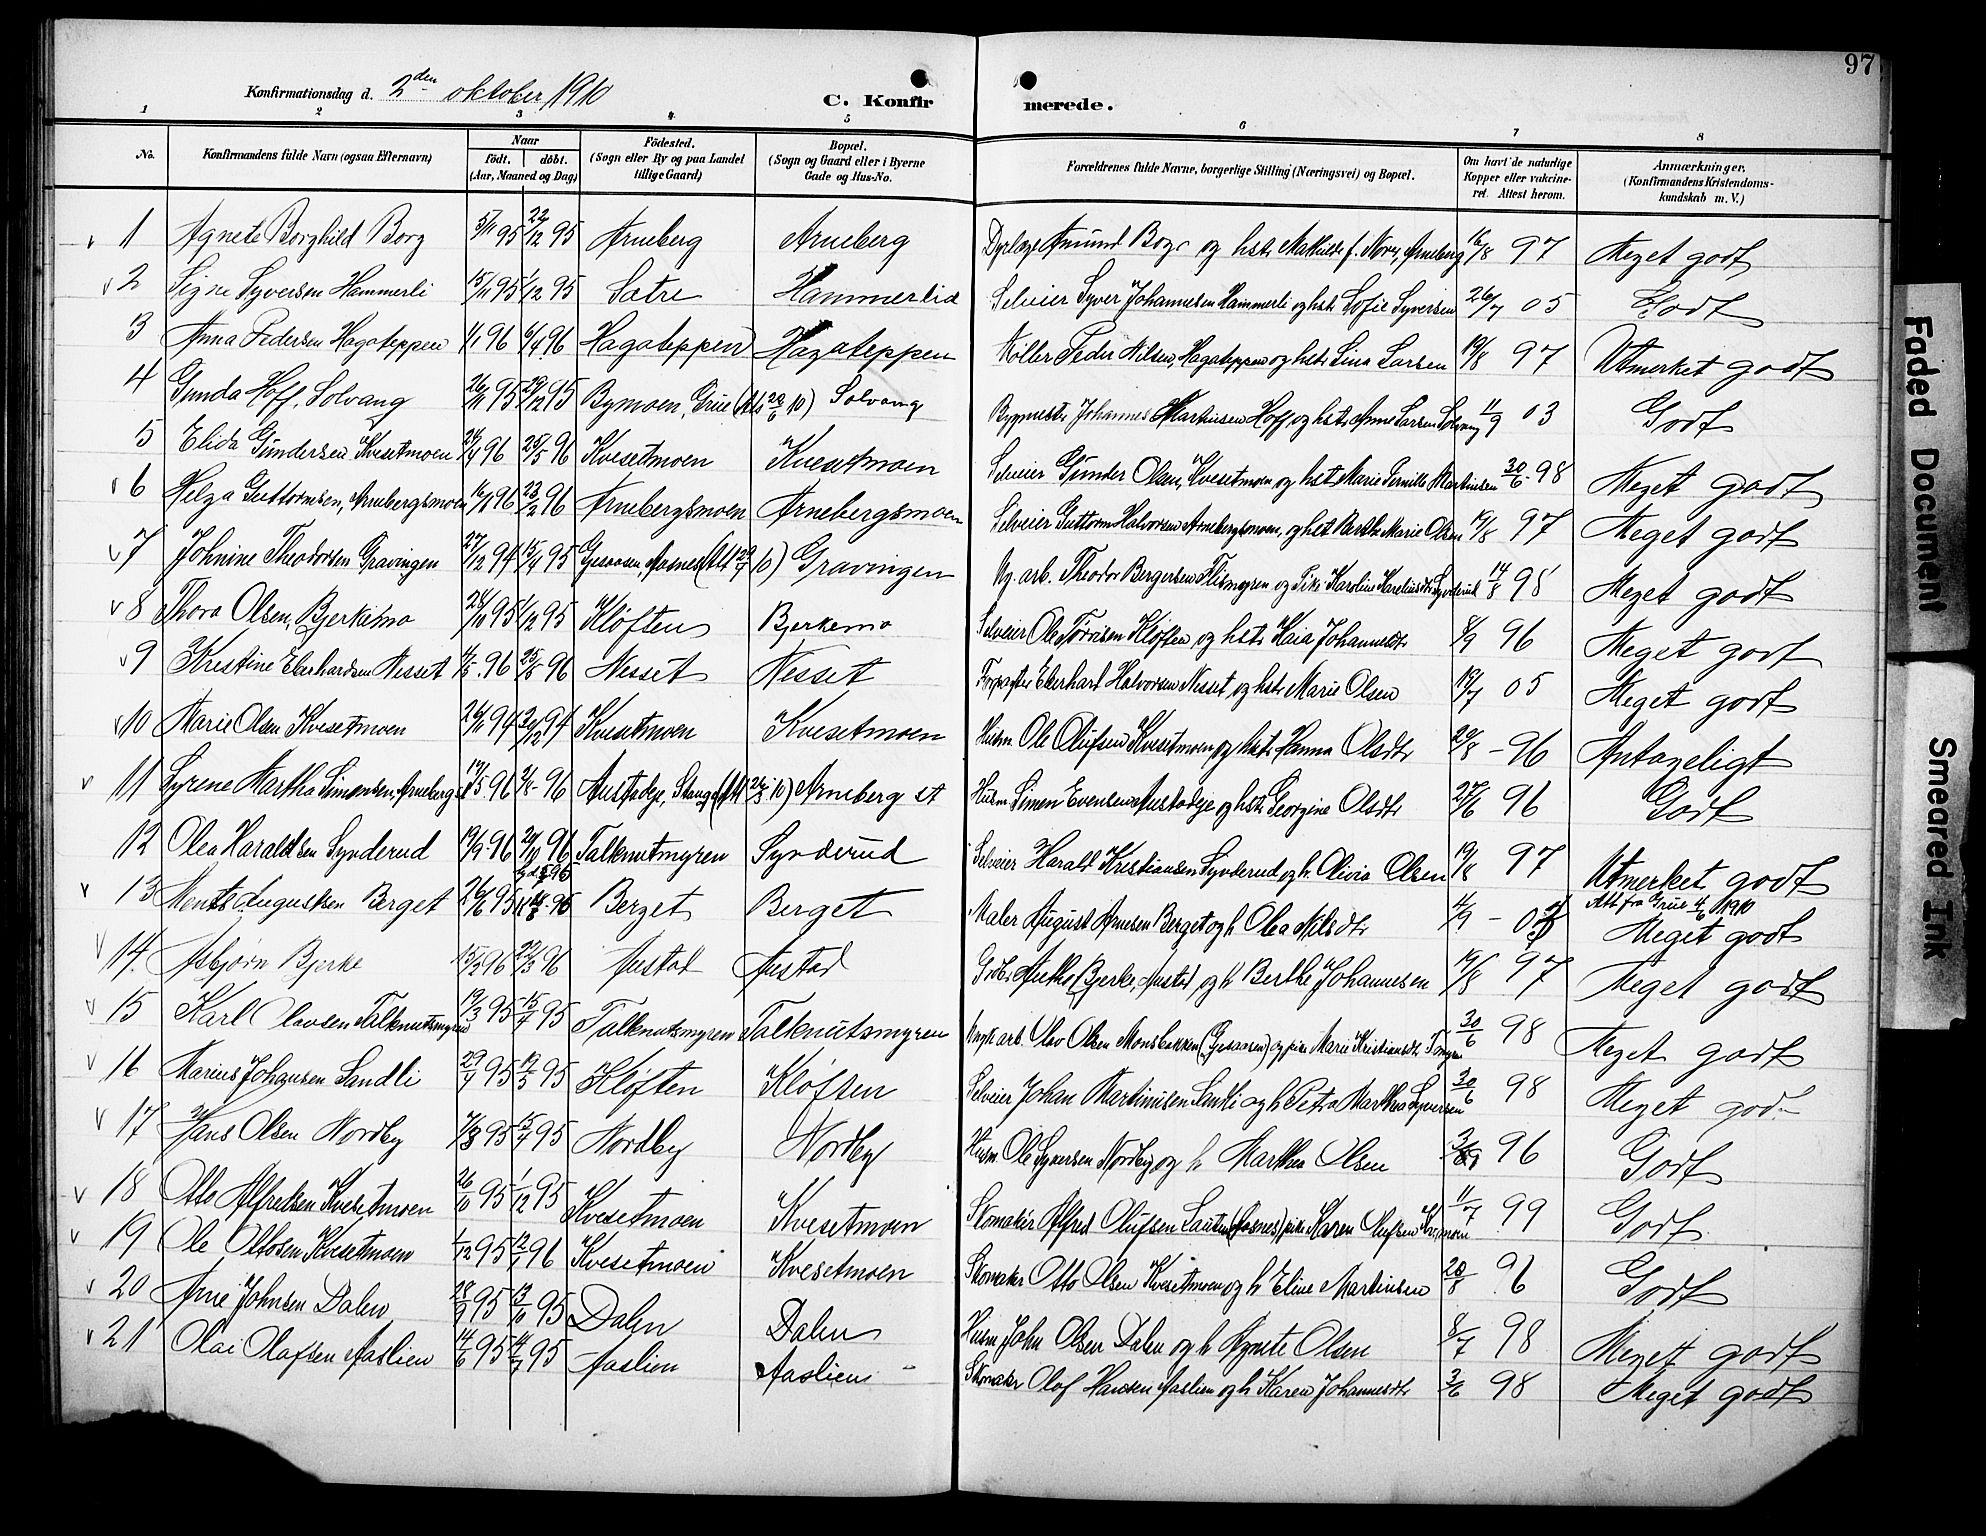 97
Konfirmationsdag d. 2den oktober 1910
C. Konfirmerede.
1 2 3 4 5 6 7 8
No. Konfirmandens fulde Navn (ogsaa Efternavn) Naar født. døbt. (Aar, Maaned og Dag) Födested. (Sogn eller By og paa Landet tillige Gaard) Bopæl. (Sogn og Gaard eller i Byerne Gade og Hus-No. Forældrenes fulde Navne, borgerlige Stilling (Næringsvei) og Bopæl. Om havt de naturlige Kopper eller vakcineret. Attest herom. Anmærkninger. (Konfirmandens Kristendomskundskab m. V.)
1 Agnete Borghild Borg 5/11 95 22/12 95 Arneberg Arneberg Amund Borg og hstr Mathilde f. Arneberg 16/8 97 Meget godt
2 Signe Syversen Hammerli 15/11 95 1/12 95 Sætre Hammerlid Selveier Syver Johannesen Hammerli og hstr Sofie Syversen 26/7 05 Godt
3 Anna Pedersen Hagateppen 1/1 96 6/4 96 Hagateppen Hagateppen Møller Peder Nilsen, Hagateppen og hstr Lina Larsen 19/8 97 Utmerket godt
4 Gunda Hoff, Solvang 26/11 95 29/12 95 Bymoen, Grue Solvang Bygmestr Johannes Martinsen Hoff og hstr Anne Larsen Solvang 11/9 03 Godt
5 Elida Gundersen Kvesetmoen 96 25/5 96 Kvesetmoen Kvesetmoen Selveier Gunder Olsen, Kvesetmoen og hstr Marie Pernille Martinsen 30/6 98 Meget godt
6 Helga Guttormsen, Arnebergsmoen 96 23/2 96 Arnebergsmoen Arnebergsmoen Selveier Guttorm Halvorsen Arnebergsmoen, og hst Berthe Marie Olsen 19/8 97 Meget godt
7 Johnine Theodorsen Gravingen 27/12 94 15/4 95 Gjesaasen, Aasnes Gravingen arb. Theodor Bergersen Flismyren og Pike Karoline 14/8 98 Meget godt
8 Thora Olsen, Bjerkemo 95 1/12 95 Kløften Bjerkemo Selveier Ole Kløften og hstr Johannesdtr 8/9 96 Meget godt
9 Kristine Eberhardsen Nesset 4/5 96 25/5 96 Nesset Nesset Forpagter Eberhart Halvorsen Nesset og hstr Marie Olsen 19/7 05 Meget godt
10 Marie Olsen Kvesetmoen 94 94 Kvesetmoen Kvesetmoen Husm Ole Olufsen Kvesetmoen og hstr Hanna Olsdtr 20/8 - 96 Antageligt
11 Syrene Martha Simensen, Arneberg st 96 96 Austadeje, Stange Arneberg st Husm Simen Evensen Austadeje og hstr Georgine Olsdtr 27/6 96 Godt
12 Olea Haraldsen Synderud 19/9 96 96 Falknutmyren Synderud Selveier Harald Kristiansen Synderud og h. Olivia Olsen 19/8 97 Utmerket godt
13 Augustsen Berget 26/6 95 95 Berget Berget Maler August Arnesen Berget og h Olea Nilsdtr 4/9 - Att fra Grue 4/6 1910 Meget godt
14. Asbjørn Bjerke 15/2 96 22/3 96 Austad Austad Bjerke, Austad og h Berthe Johannesen 19/8 97 Meget godt
15 Karl Olavsen Falknutsmyren 19/3 95 15/4 95 Falknutsmyren Falknutsmyren arb. Olav Olsen Monsbakken (Gjesaasen) og pike Marie Kristiansdtr 30/6 98 Meget godt
16 Marius Johansen Sandli 29/4 95 19/5 95 Kløften Kløften Selveier Johan Martinusen Sandli og h Petra Marthea Syversen 30/6 98 Meget godt
17 Hans Olsen Nordby 95 95 Nordby Nordby Husm. Ole Syversen Nordby og h Marthea Olsen 96 Godt
18 Otto Alfredsen Kvesetmoen 26/10 95 1/12 95 Kvesetmoen Kvesetmoen Skomaker Alfred Olufsen (Aasnes) pike Karen Olufsen 11/7 99 Godt
19 Ole Ottosen Kvesetmoen 1/12 95 12/1 96 Kvesetmoen Kvesetmoen Skomaker Otto Olsen Kvesetmoen og h Eline Martinsen 20/8 96 Godt
20 Arne Johnsen Dalen 28/9 95 13/10 95 Dalen Dalen Husm John Olsen Dalen og h Agnete Olsen 8/7 98 Meget godt
21 Olai Olafsen Aaslien 14/6 95 14/7 95 Aaslien Aaslien Skomaker Olof Hansen Aaslien og h Karen Johannesdtr 3/6 98 Meget godt
Faded Document
Smeared Ink